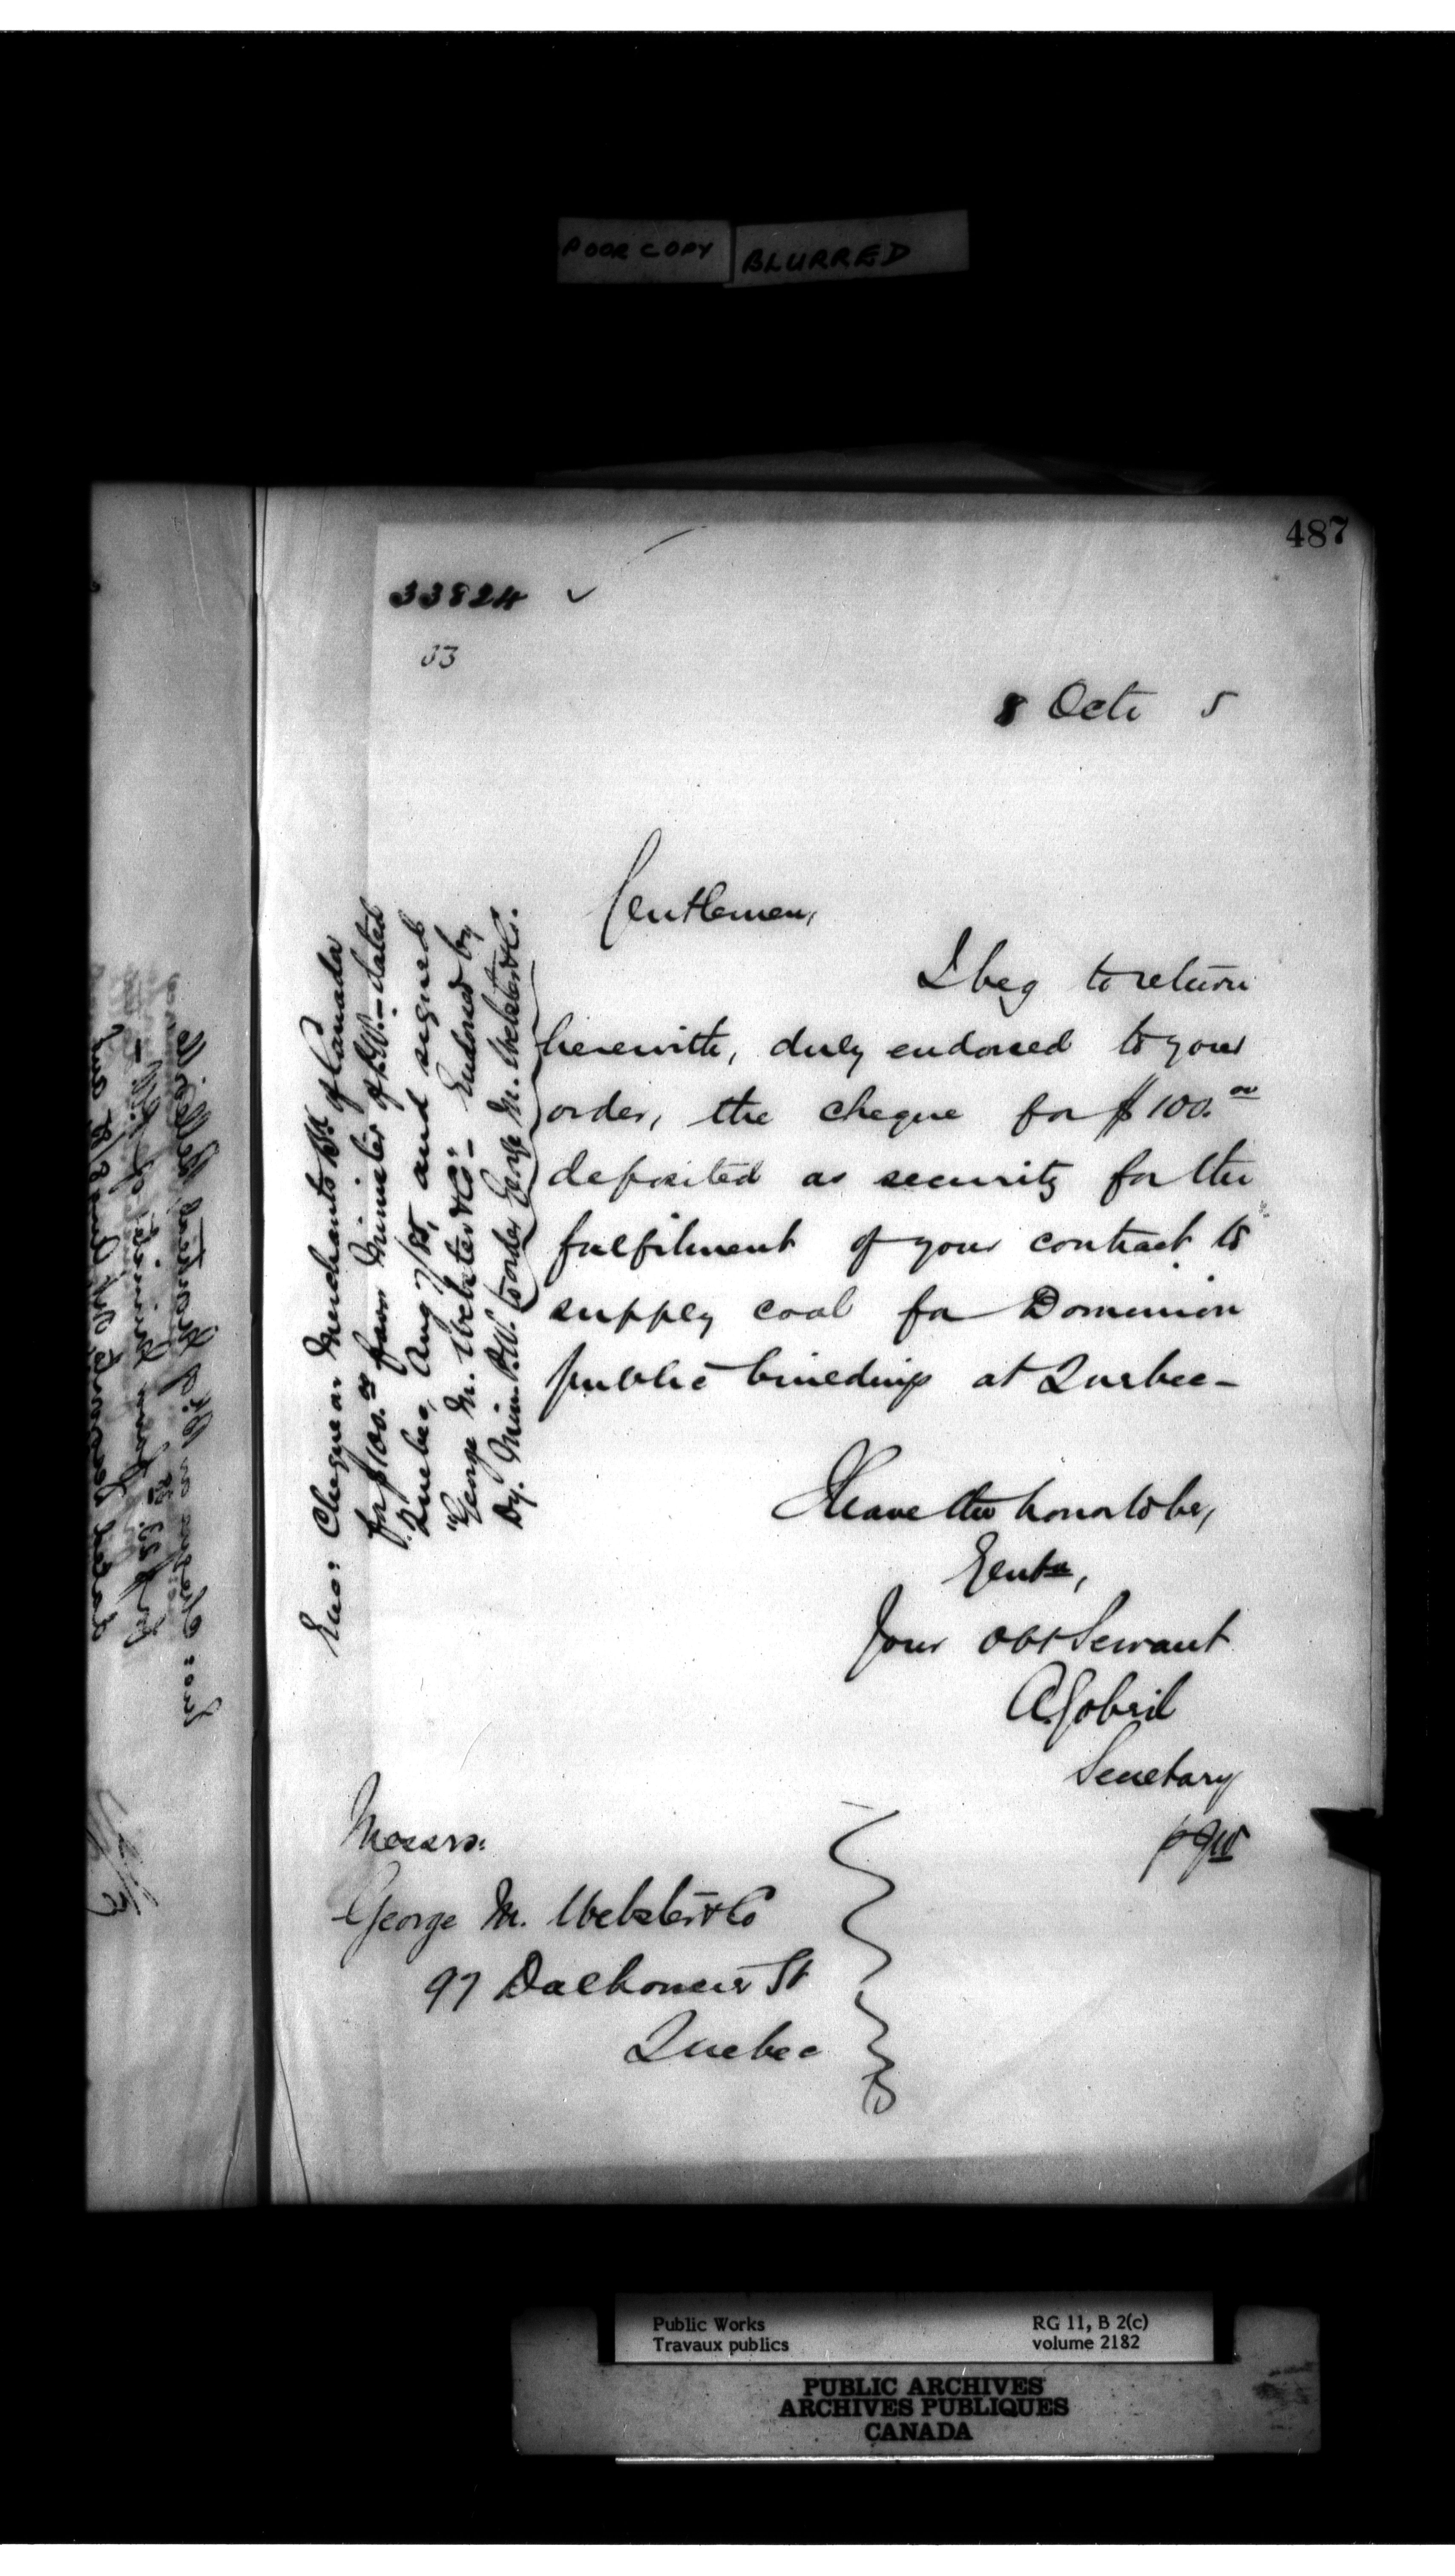 POOR COPY BLURRED
487
33824
33
8 Octr 5
Gentlemen,
I beg to return
herewith, duly endorsed to your
order, the cheque for $100.00
deposited as security for the
fulfilment of your contract to
supply coal for Dominion
public buildings at Quebec-
I have the honor to be,
Gents,
Your obt Servant
A. Gobeil
Secretary
Messrs.
George M. Webster & Co
97 Dalhousie St
Quebec
Enc: Cheque on Merchants Bk of Canada
for $100.00 favor Minister of P.W. - dated
Quebec, Aug 7/85, and signed
"George M. Webster & Co" - Endorsed by
Dy. Min. P.W. to order George M. Webster & Co.
Public Works
Travaux publics
RG 11, B 2(c)
volume 2182
PUBLIC ARCHIVES
ARCHIVES PUBLIQUES
CANADA